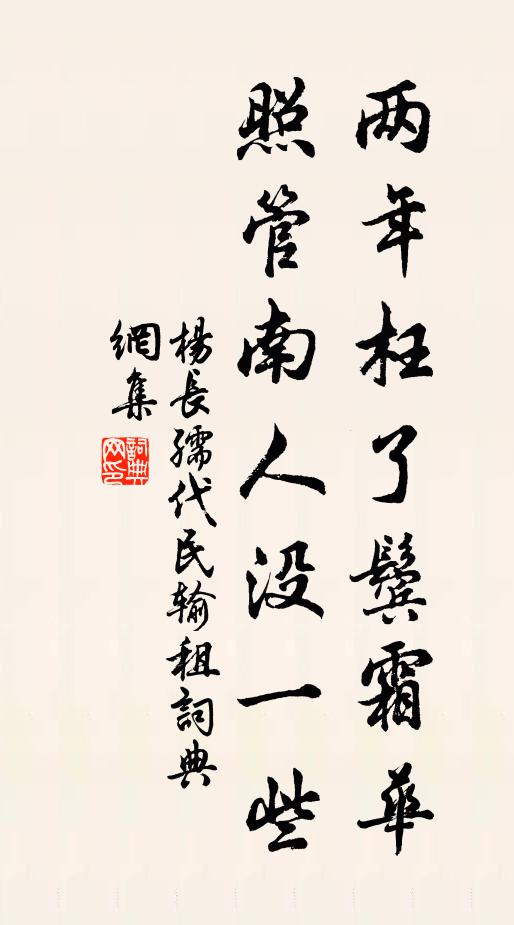 两年枉了鬓霜華
照管南人没一些
楊長孺代民输租詞典
網集
詞典网印